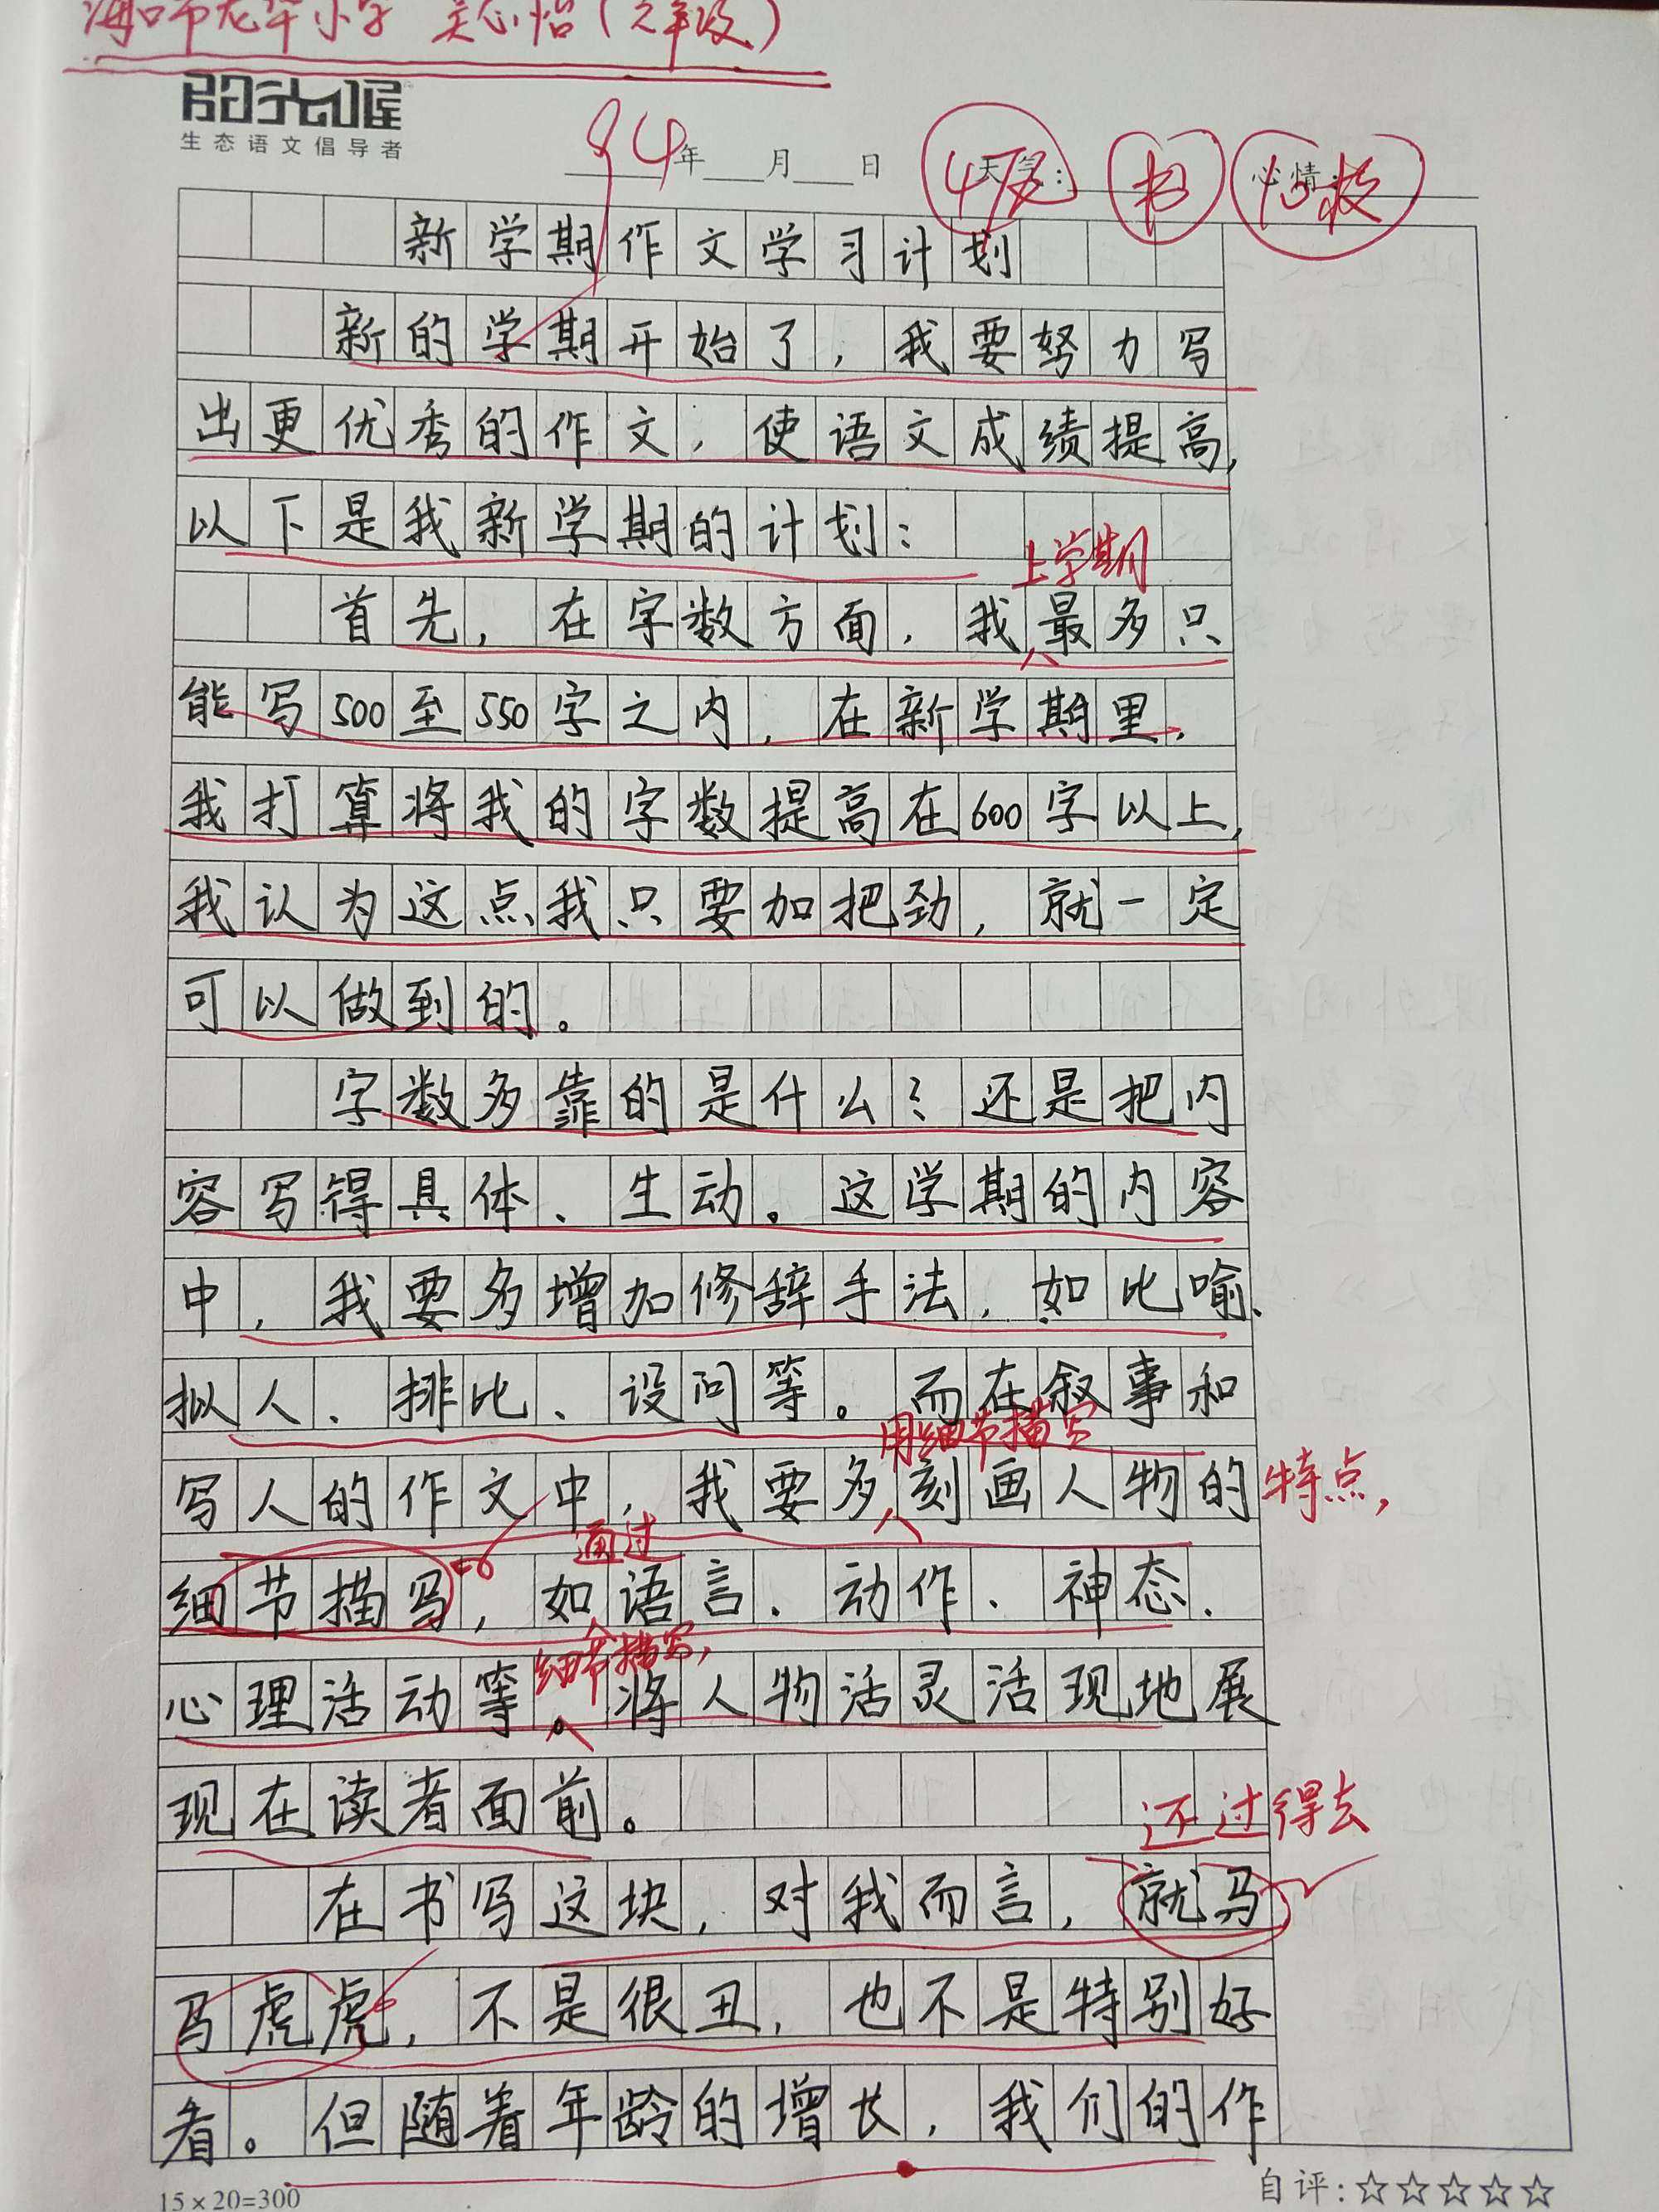 海口市龙华小学 吴心怡（六年级）
阳光喔
生态语文倡导者
94
年 月 日 天气： 心情：
新学期作文学习计划
新的学期开始了，我要努力写
出更优秀的作文，使语文成绩提高，
以下是我新学期的计划：
上学期
首先，在字数方面，我最多只
能写500至550字之内，在新学期里，
我打算将我的字数提高在600字以上，
我认为这点我只要加把劲，就一定
可以做到的。
字数多靠的是什么？还是把内
容写得具体、生动。这学期的内容
中，我要多增加修辞手法，如比喻、
拟人、排比、设问等。而在叙事和
用细节描写
写人的作文中，我要多刻画人物的特点，
通过
细节描写，如语言、动作、神态、
细节描写，
心理活动等。将人物活灵活现地展
现在读者面前。
还过得去
在书写这块，对我而言，就马
马虎虎，不是很丑，也不是特别好
看。但随着年龄的增长，我们的作
15×20=300
自评：☆☆☆☆☆